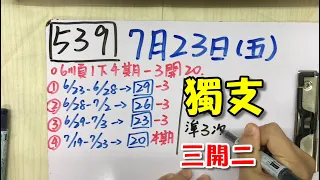 539 7月23日(五)
06順1下4期-3開20.
① 6/23-6/28→29-3
② 6/28-7/2→26-3
③ 6/29-7/3→23-3
④ 7/19-7/23→20本期
獨支
準3次
三開二